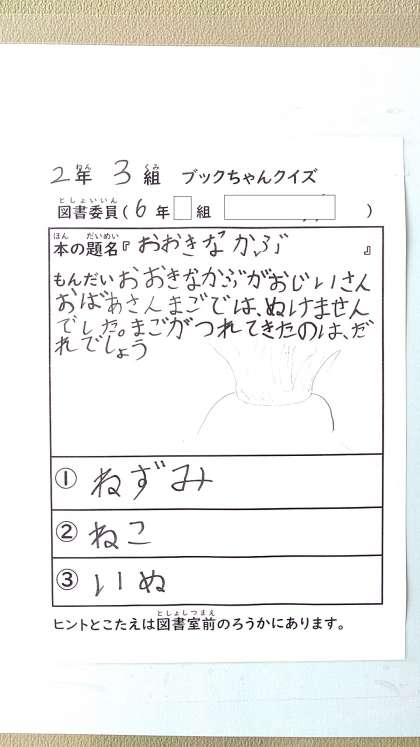 2年 3組 ブックちゃんクイズ
図書委員(6年 組 )
本の題名『おおきなかぶ』
もんだい おおきなかぶがおじいさん
おばあさんまごでは、ぬけません
でした。まごがつれてきたのは、だ
れでしょう
① ねずみ
② ねこ
③ いぬ
ヒントとこたえは図書室前のろうかにあります。